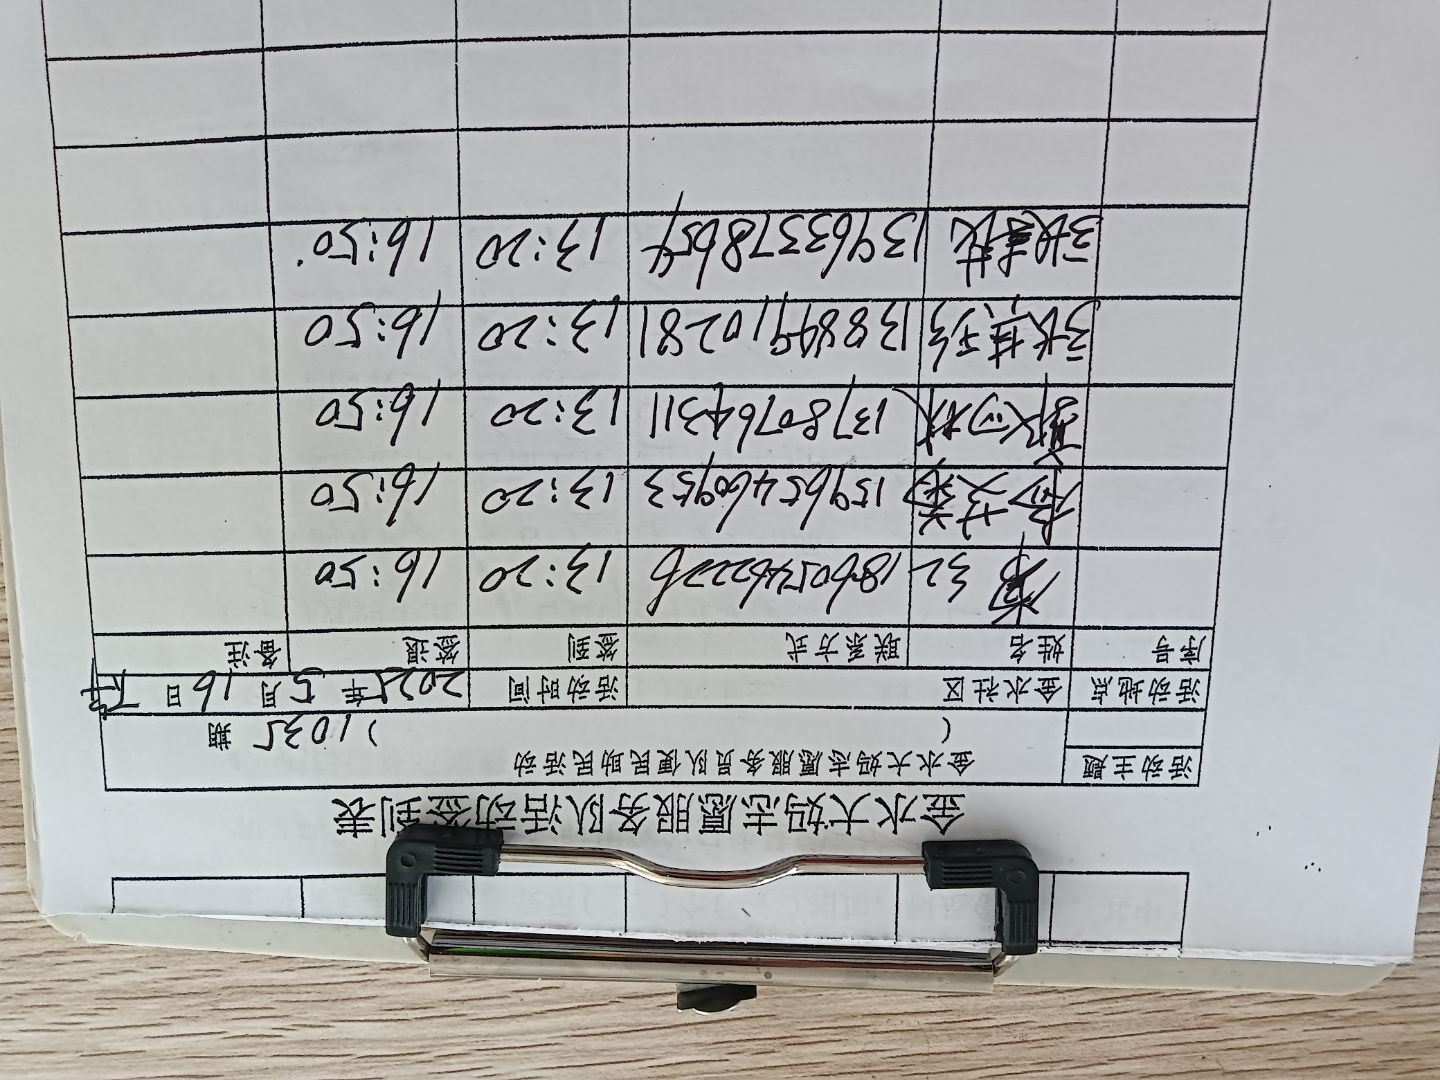 金水大妈志愿服务队活动签到表
活动主题 金水大妈志愿服务员队便民助民活动
（ ）1035 期
活动地点 金水社区 活动时间 2025年5月16日 下午
序号 姓名 联系方式 签到 签退 备注
18605462226 13:20 16:50
15965460953 13:20 16:50
13780764311 13:20 16:50
张桂珍 13884910281 13:20 16:50
13963378654 13:20 16:50